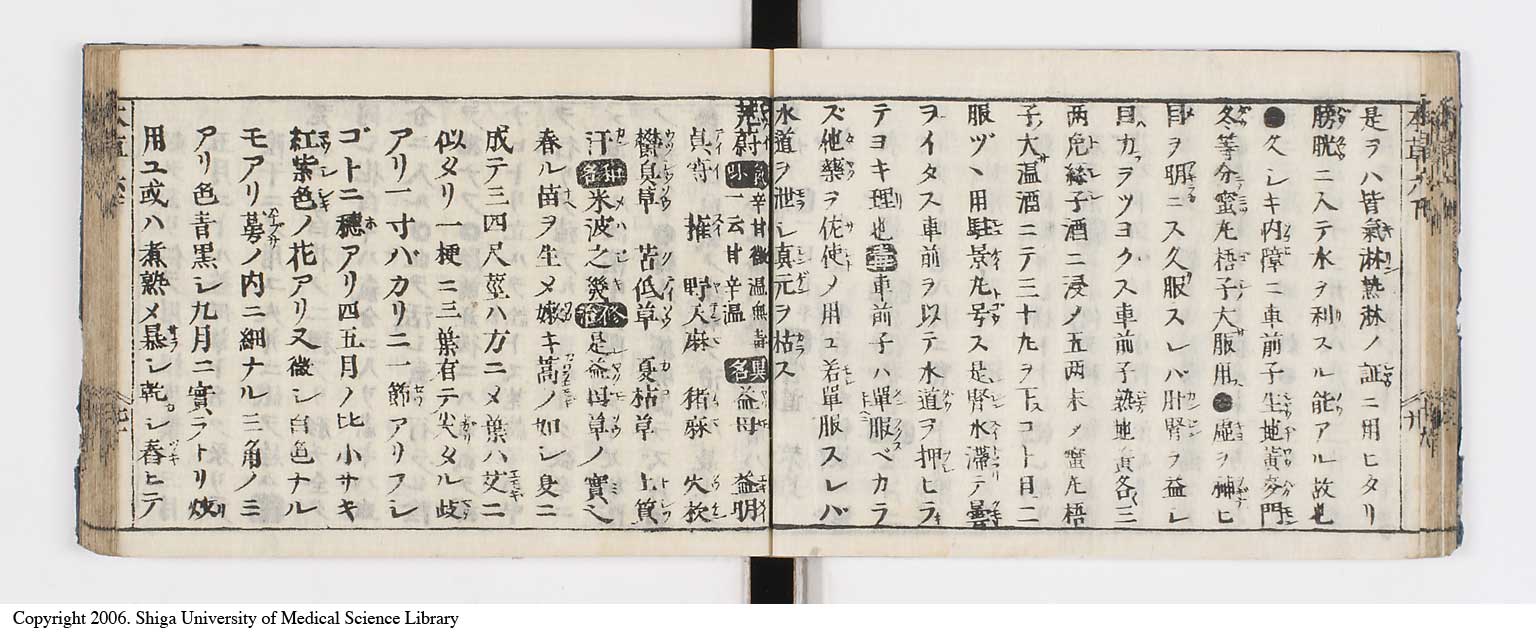 是ヲハ皆氣淋熱淋ノ証ニ用ヒタリ
膀胱ニ入テ水ヲ利スル能アル故也
●久シキ内障ニ車前子生地黄麥門
冬等分蜜丸梧子大服用●虚ヲ補ヒ
目ヲ明ニス久服スレバ肝腎ヲ益シ
目カヲツヨクス車前子熟地黄各三
两兎絲子酒ニ浸ノ五两末メ蜜丸梧
子大温酒ニテ三十丸ヲ下スコト日二
服ヅヽ用駐景丸号ス是腎水滞テ曇
ヲイタス車前ヲ以テ水道ヲ押ヒラ
テヨキ理也 車前子ハ單服ベカラ
ズ他藥ヲ佐使ノ用ユ若單服スレバ
水道ヲ泄シ真元ヲ枯ス
茺蔚 氣味 辛甘微温無毒 一云甘辛温 異名 益母 益明
貞蔚 蓷 野天麻 猪麻 火杴
欝臭草 苦低草 夏枯草 土質
汗 和名 米波之幾 是益母草ノ實之
春ル苗ヲ生メ嫩キ蒿ノ如シ夏ニ
成テ三四尺莖ハ方ニメ葉ハ艾ニ
似タリ一梗ニ三葉有テ尖タル歧
アリ一寸バカリニ一節アリフシ
ゴトニ穂アリ四五月ノ比小サキ
紅紫色ノ花アリ又微シ白色ナル
モアリ萼ノ内ニ細ナル三角ノミ
アリ色青黒シ九月ニ實ヲトリ炒
用ユ或ハ煮熟メ曝シ乾シ舂ヒテ
Copyright 2006. Shiga University of Medical Science Library